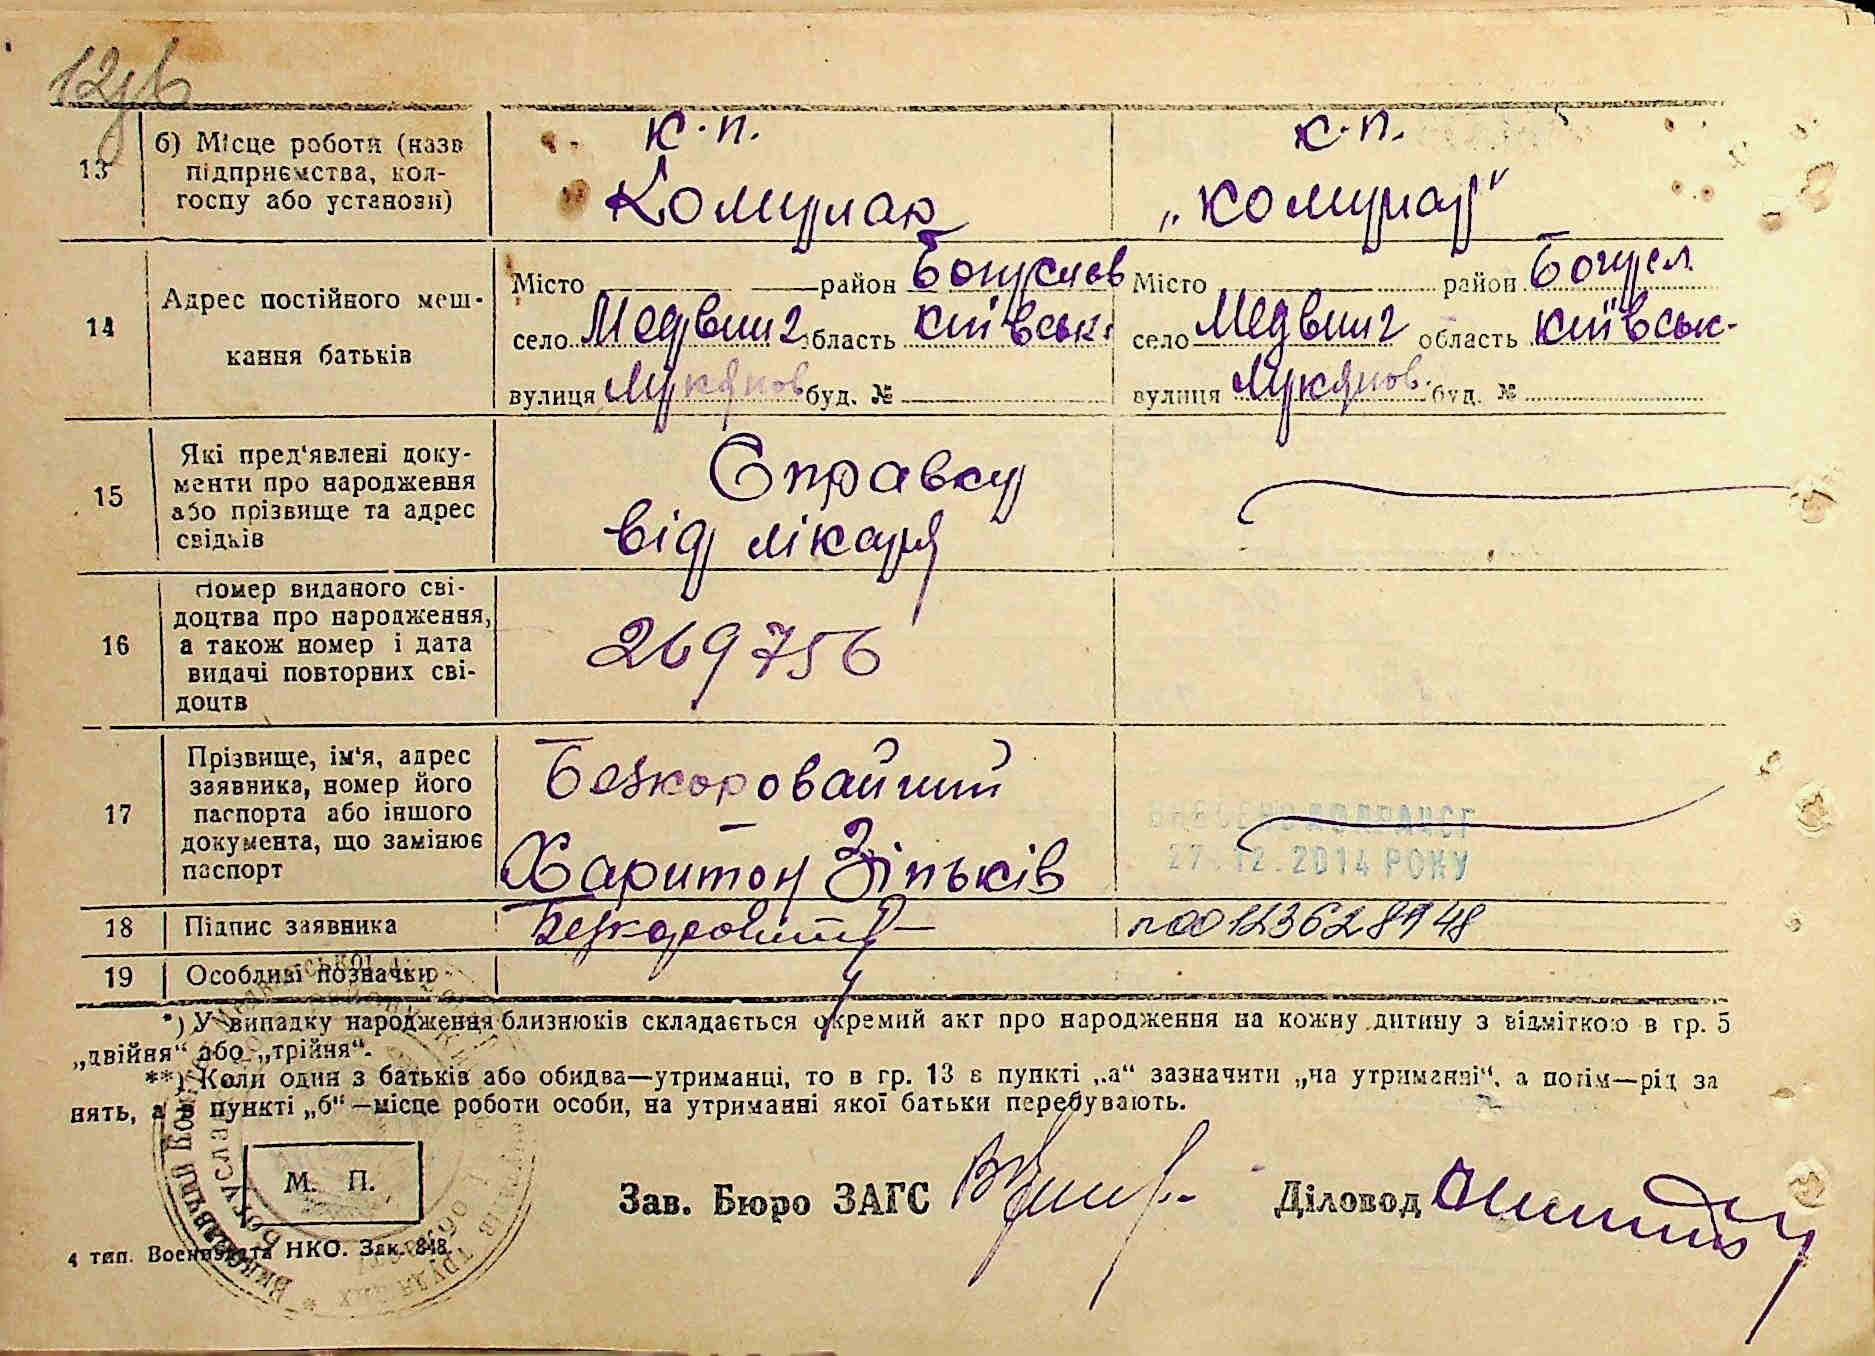 12
13 б) Місце роботи (назв підприємства, колгоспу або установи) к.п. Комунар к.п. „Комунар"
14 Адрес постійного мешкання батьків
Місто район Богуслав Місто район Богусл.
село Медвин область Київськ. село Медвин область Київськ-
вулиця Лукянов буд. № вулиця Лукянов. буд. №
15 Які пред'явлені документи про народження або прізвище та адрес свідків Справку від лікаря
16 Номер виданого свідоцтва про народження, а також номер і дата видачі повторних свідоцтв 269756
17 Прізвище, ім'я, адрес заявника, номер його паспорта або іншого документа, що замінює паспорт Безкоровайний Харитон Зіньків
ВНЕСЕНО ДО ДРАЦСГ
27.12.2014 РОКУ
18 Підпис заявника 00123628948
19 Особливі позначки
*) У випадку народження близнюків складається окремий акт про народження на кожну дитину з відміткою в гр. 5
„двійня" або „трійня".
**) Коли один з батьків або обидва—утриманці, то в гр. 13 в пункті „а" зазначити „на утриманні", а потім—рід за
нять, а в пункті „б"—місце роботи особи, на утриманні якої батьки перебувають.
М. П.
Зав. Бюро ЗАГС Діловод
4 тип. Воениздата НКО. Зак. 848.